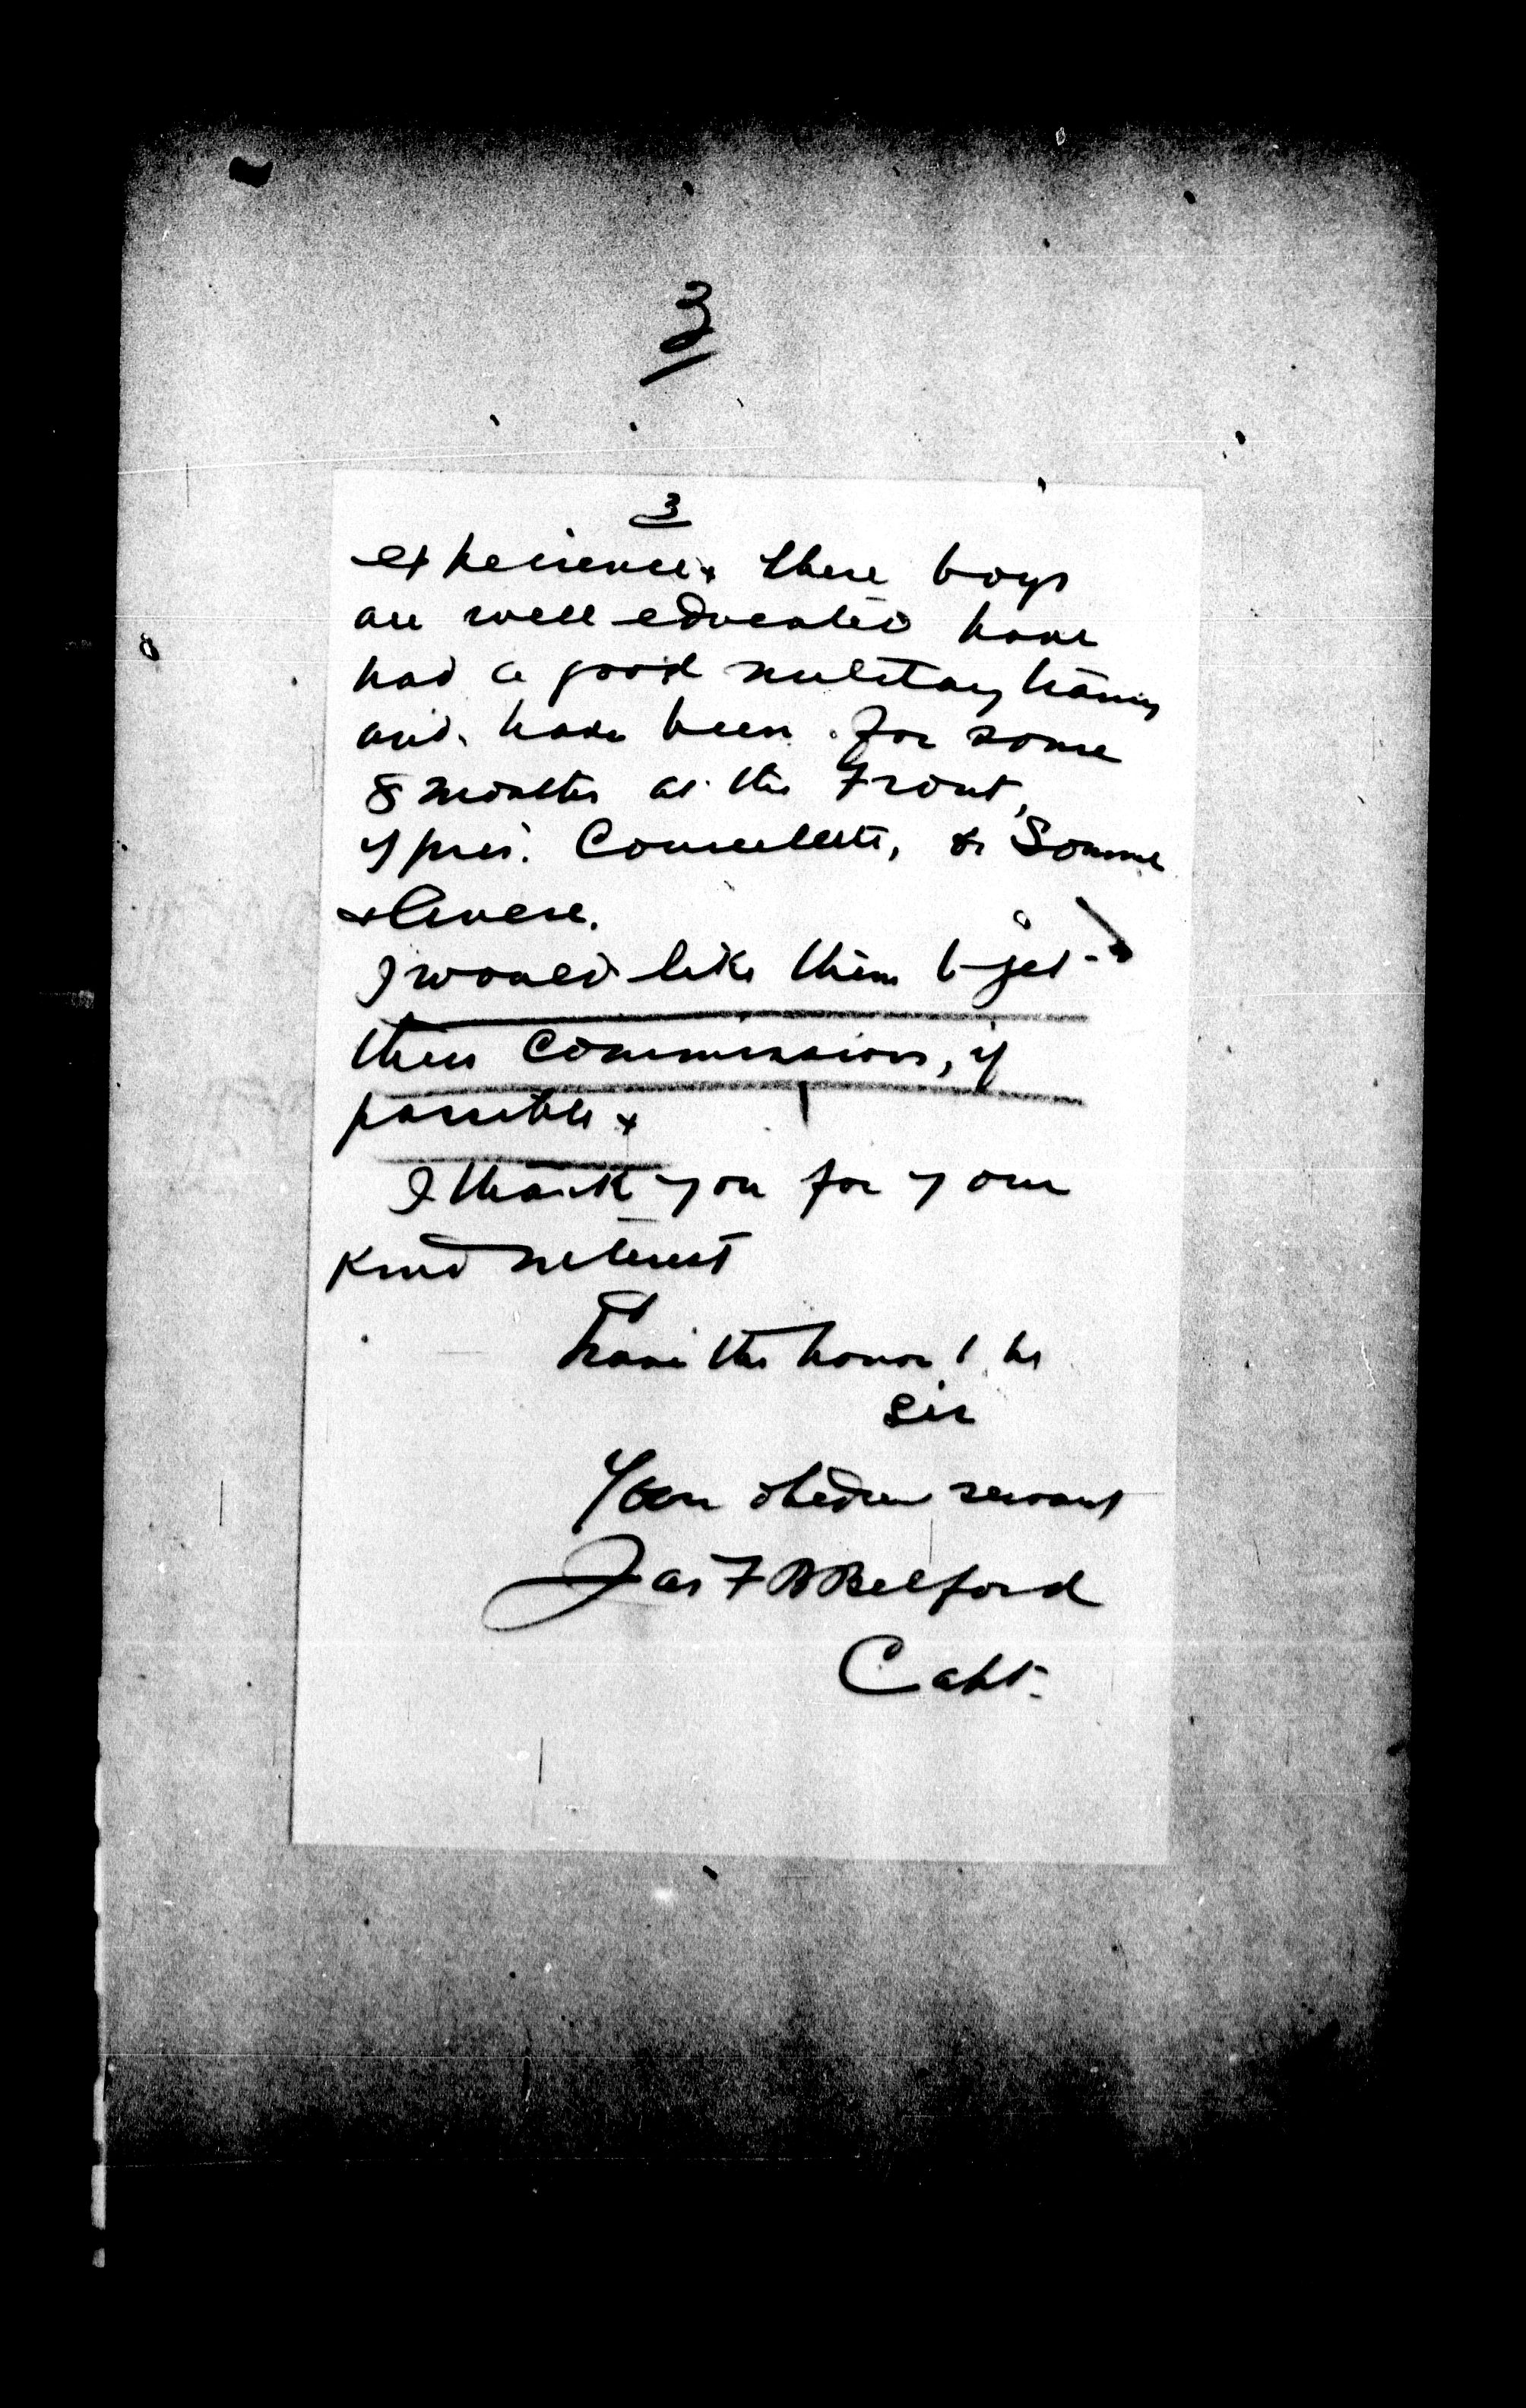 3
3
experience & these boys
are well educated have
had a good military training
and have been for some
8 months at the Front,
Ypres. Courcelette, & Somme
I would like them to get
their Commissions, if
possible &
I thank you for your
kind interest
have the honor to be
Sir
Your obedient servant
Jas F B Belford
Capt.